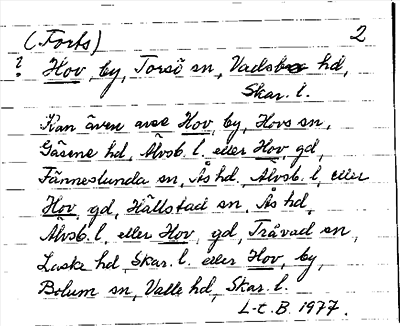 (Forts) 2
? Hov, by, Torsö sn, Vadsbo hd,
Skar. l.
Kan även avse Hov, by, Hovs sn,
Gäsene hd, Älvsb. l. eller Hov gd,
Fänneslunda sn, Ås hd, Älvsb. l, eller
Hov gd, Hällstad sn, Ås hd,
Älvsb. l, eller Hov, gd, Tråvad sn,
Laske hd, Skar. l. eller Hov, by,
Bolum sn, Valle hd, Skar. l.
L-E. B. 1977.